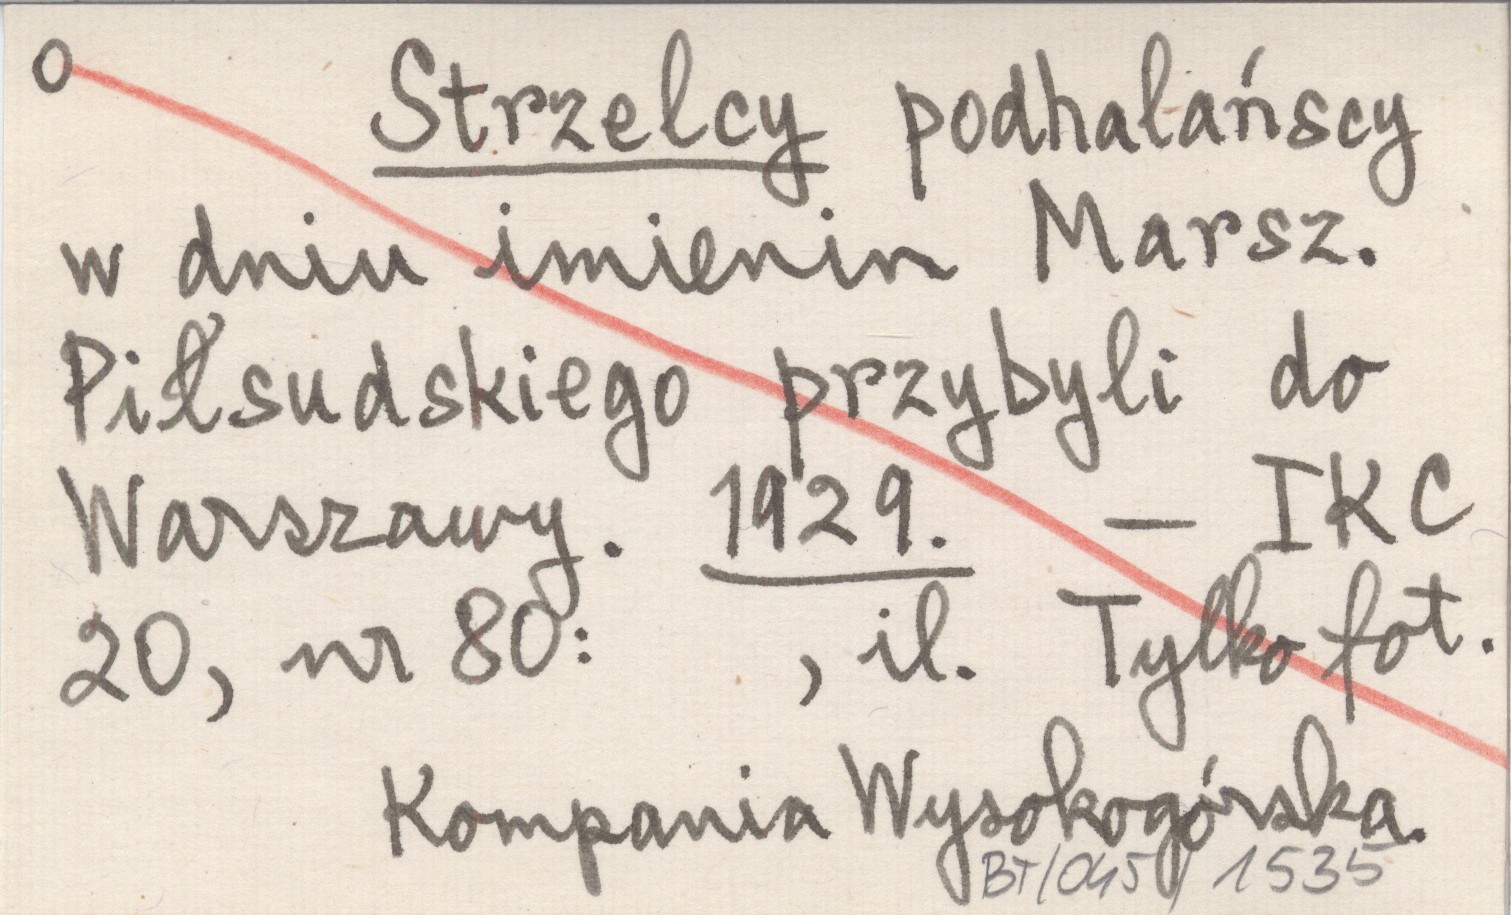 O Strzelcy podhalańscy
w dniu imienin Marsz.
Piłsudskiego przybyli do
Warszawy. 1929. — IKC
20, nr 80: , il. Tylko fot.
Kompania Wysokogórska.
BT/045/1535